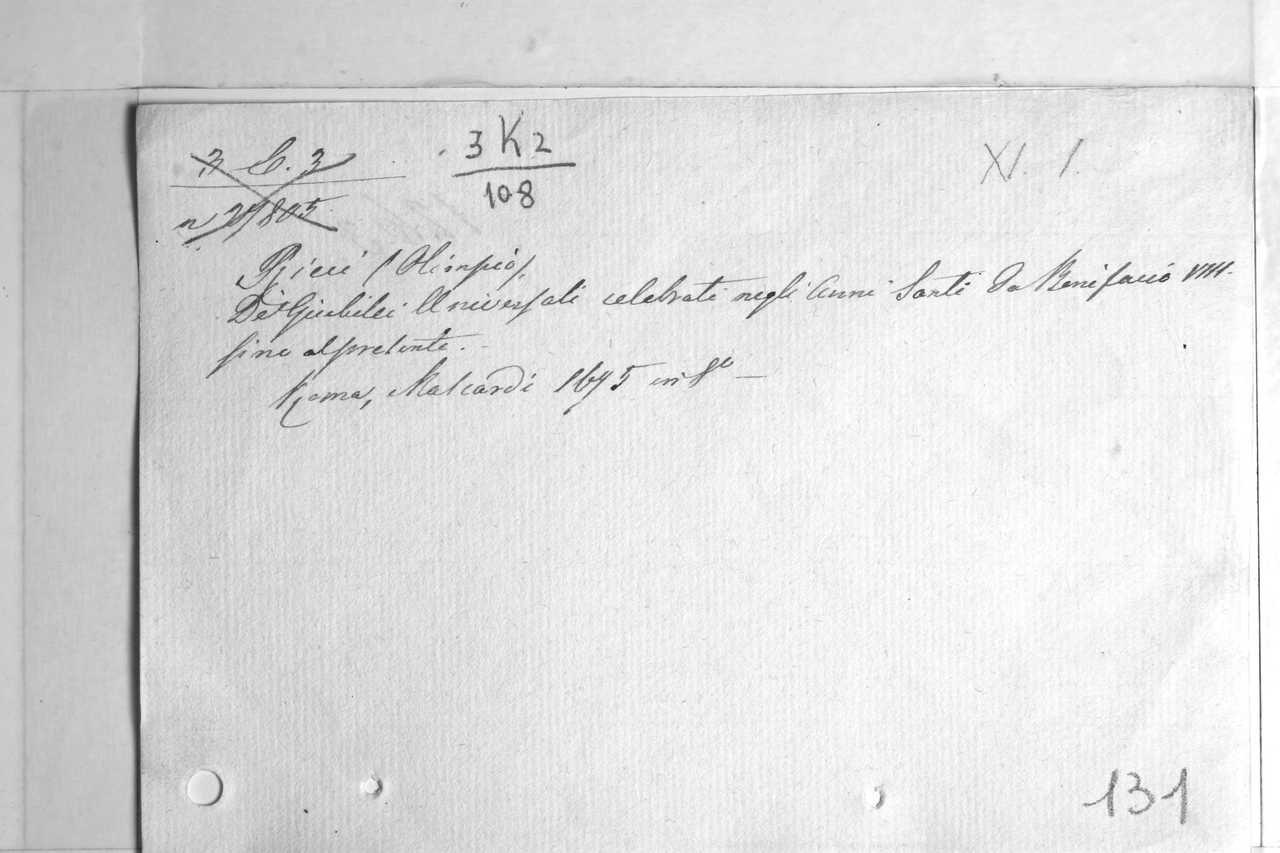 3 C. 3
n 29805
3 K 2
108
XI. 1.
Ricci (Olimpio)
De' Giubilei Universali celebrati negli Anni Santi da Bonifacio VIII.
fino al presente. -
Roma, Mascardi 1675 in 8° -
131